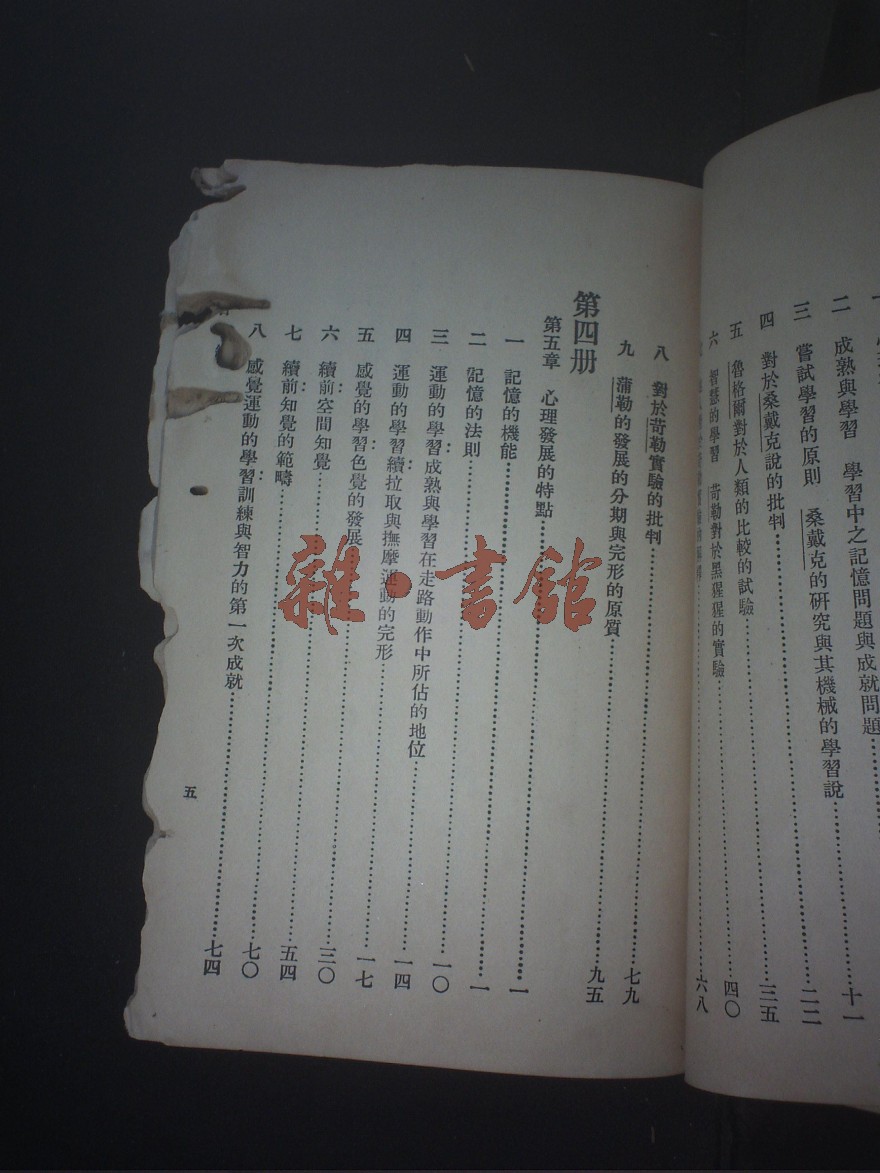 二 成熟與學習 學習中之記憶問題與成就問題
三 嘗試學習的原則 桑戴克的研究與其機械的學習說……十一
四 對於桑戴克說的批判……二二
五 魯格爾對於人類的比較的試驗……三五
六 智慧的學習 苛勒對於黑猩猩的實驗……四〇
……六八
八 對於苛勒實驗的批判……七九
九 蒲勒的發展的分期與完形的原質……九五
第四册
第五章 心理發展的特點……一
一 記憶的機能……一
二 記憶的法則……一〇
三 運動的學習：成熟與學習在走路動作中所佔的地位……一四
四 運動的學習續：拉取與撫摩運動的完形……一七
五 感覺的學習：色覺的發展……三〇
六 續前：空間知覺……五四
七 續前：知覺的範疇……七〇
八 感覺運動的學習：訓練與智力的第一次成就……七四
五
雜·書館